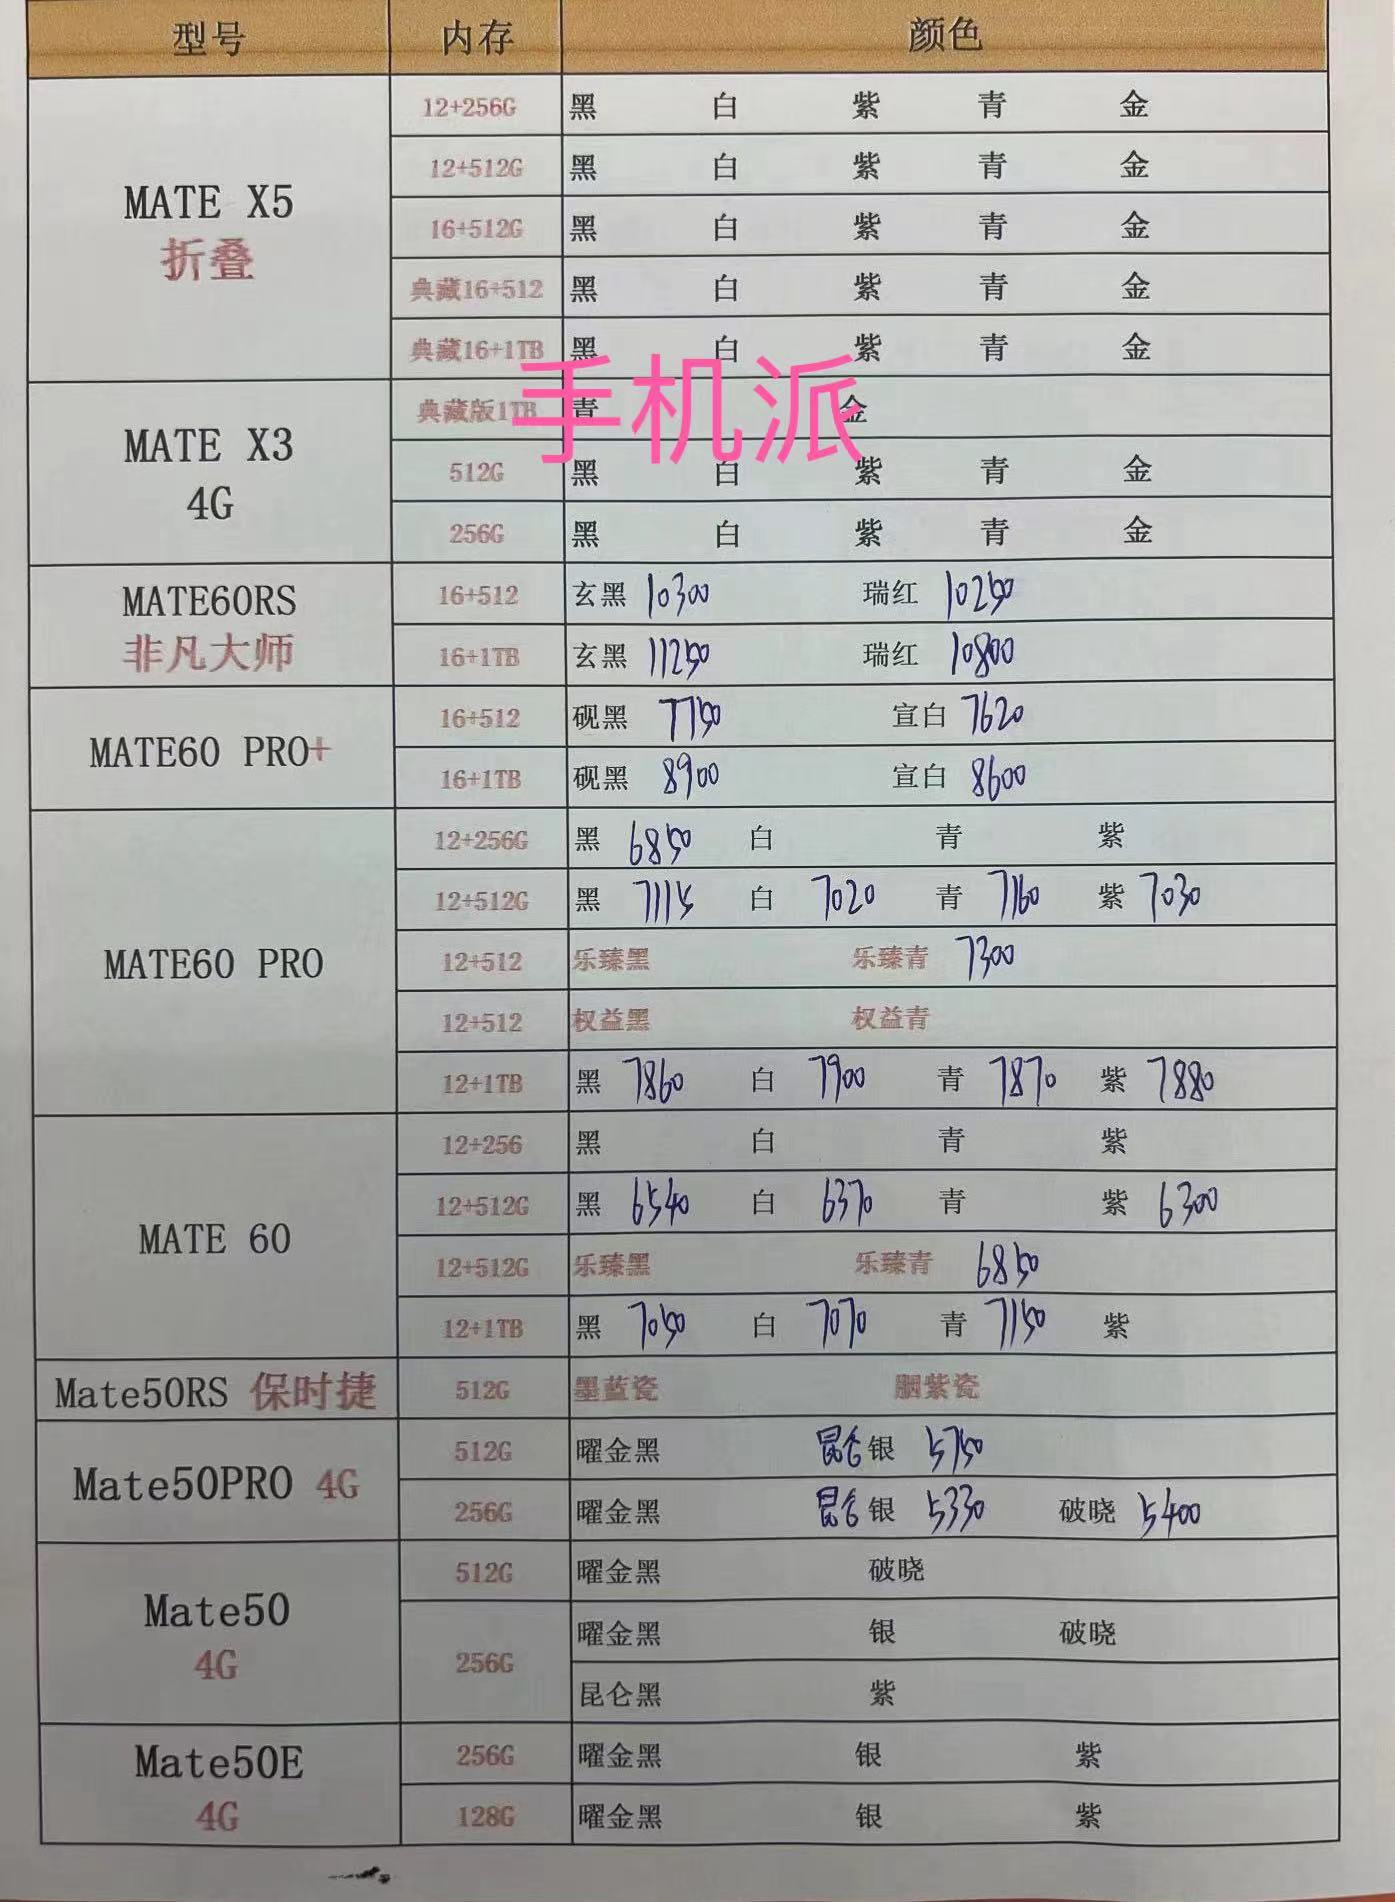 型号 内存 颜色
MATE X5 折叠 12+256G 黑 白 紫 青 金
12+512G 黑 白 紫 青 金
16+512G 黑 白 紫 青 金
典藏16+512 黑 白 紫 青 金
典藏16+1TB 黑 白 紫 青 金
手机派
MATE X3 4G 典藏版1TB 青 金
512G 黑 白 紫 青 金
256G 黑 白 紫 青 金
MATE60RS 非凡大师 16+512 玄黑 10300 瑞红 10250
16+1TB 玄黑 11250 瑞红 10800
MATE60 PRO+ 16+512 砚黑 7750 宣白 7620
16+1TB 砚黑 8900 宣白 8600
MATE60 PRO 12+256G 黑 6850 白 青 紫
12+512G 黑 7115 白 7020 青 7160 紫 7030
12+512 乐臻黑 乐臻青 7300
12+512 权益黑 权益青
12+1TB 黑 7860 白 7900 青 7870 紫 7880
MATE 60 12+256 黑 白 青 紫
12+512G 黑 6540 白 6370 青 紫 6300
12+512G 乐臻黑 乐臻青 6850
12+1TB 黑 7050 白 7070 青 7150 紫
Mate50RS 保时捷 512G 墨蓝瓷 胭紫瓷
Mate50PRO 4G 512G 曜金黑 昆仑银 5750
256G 曜金黑 昆仑银 5330 破晓 5400
Mate50 4G 512G 曜金黑 破晓
256G 曜金黑 银 破晓
昆仑黑 紫
Mate50E 4G 256G 曜金黑 银 紫
128G 曜金黑 银 紫